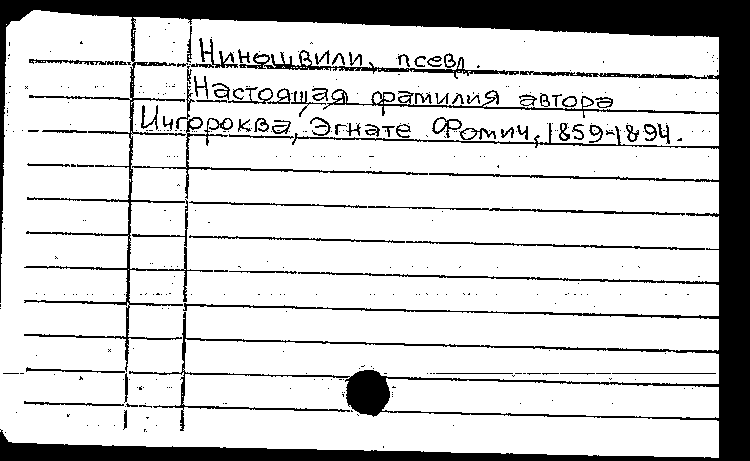 Ниношвили, псевд.
Настоящая фамилия автора
Ингороква, Эгнате Фомич, 1859-1894.